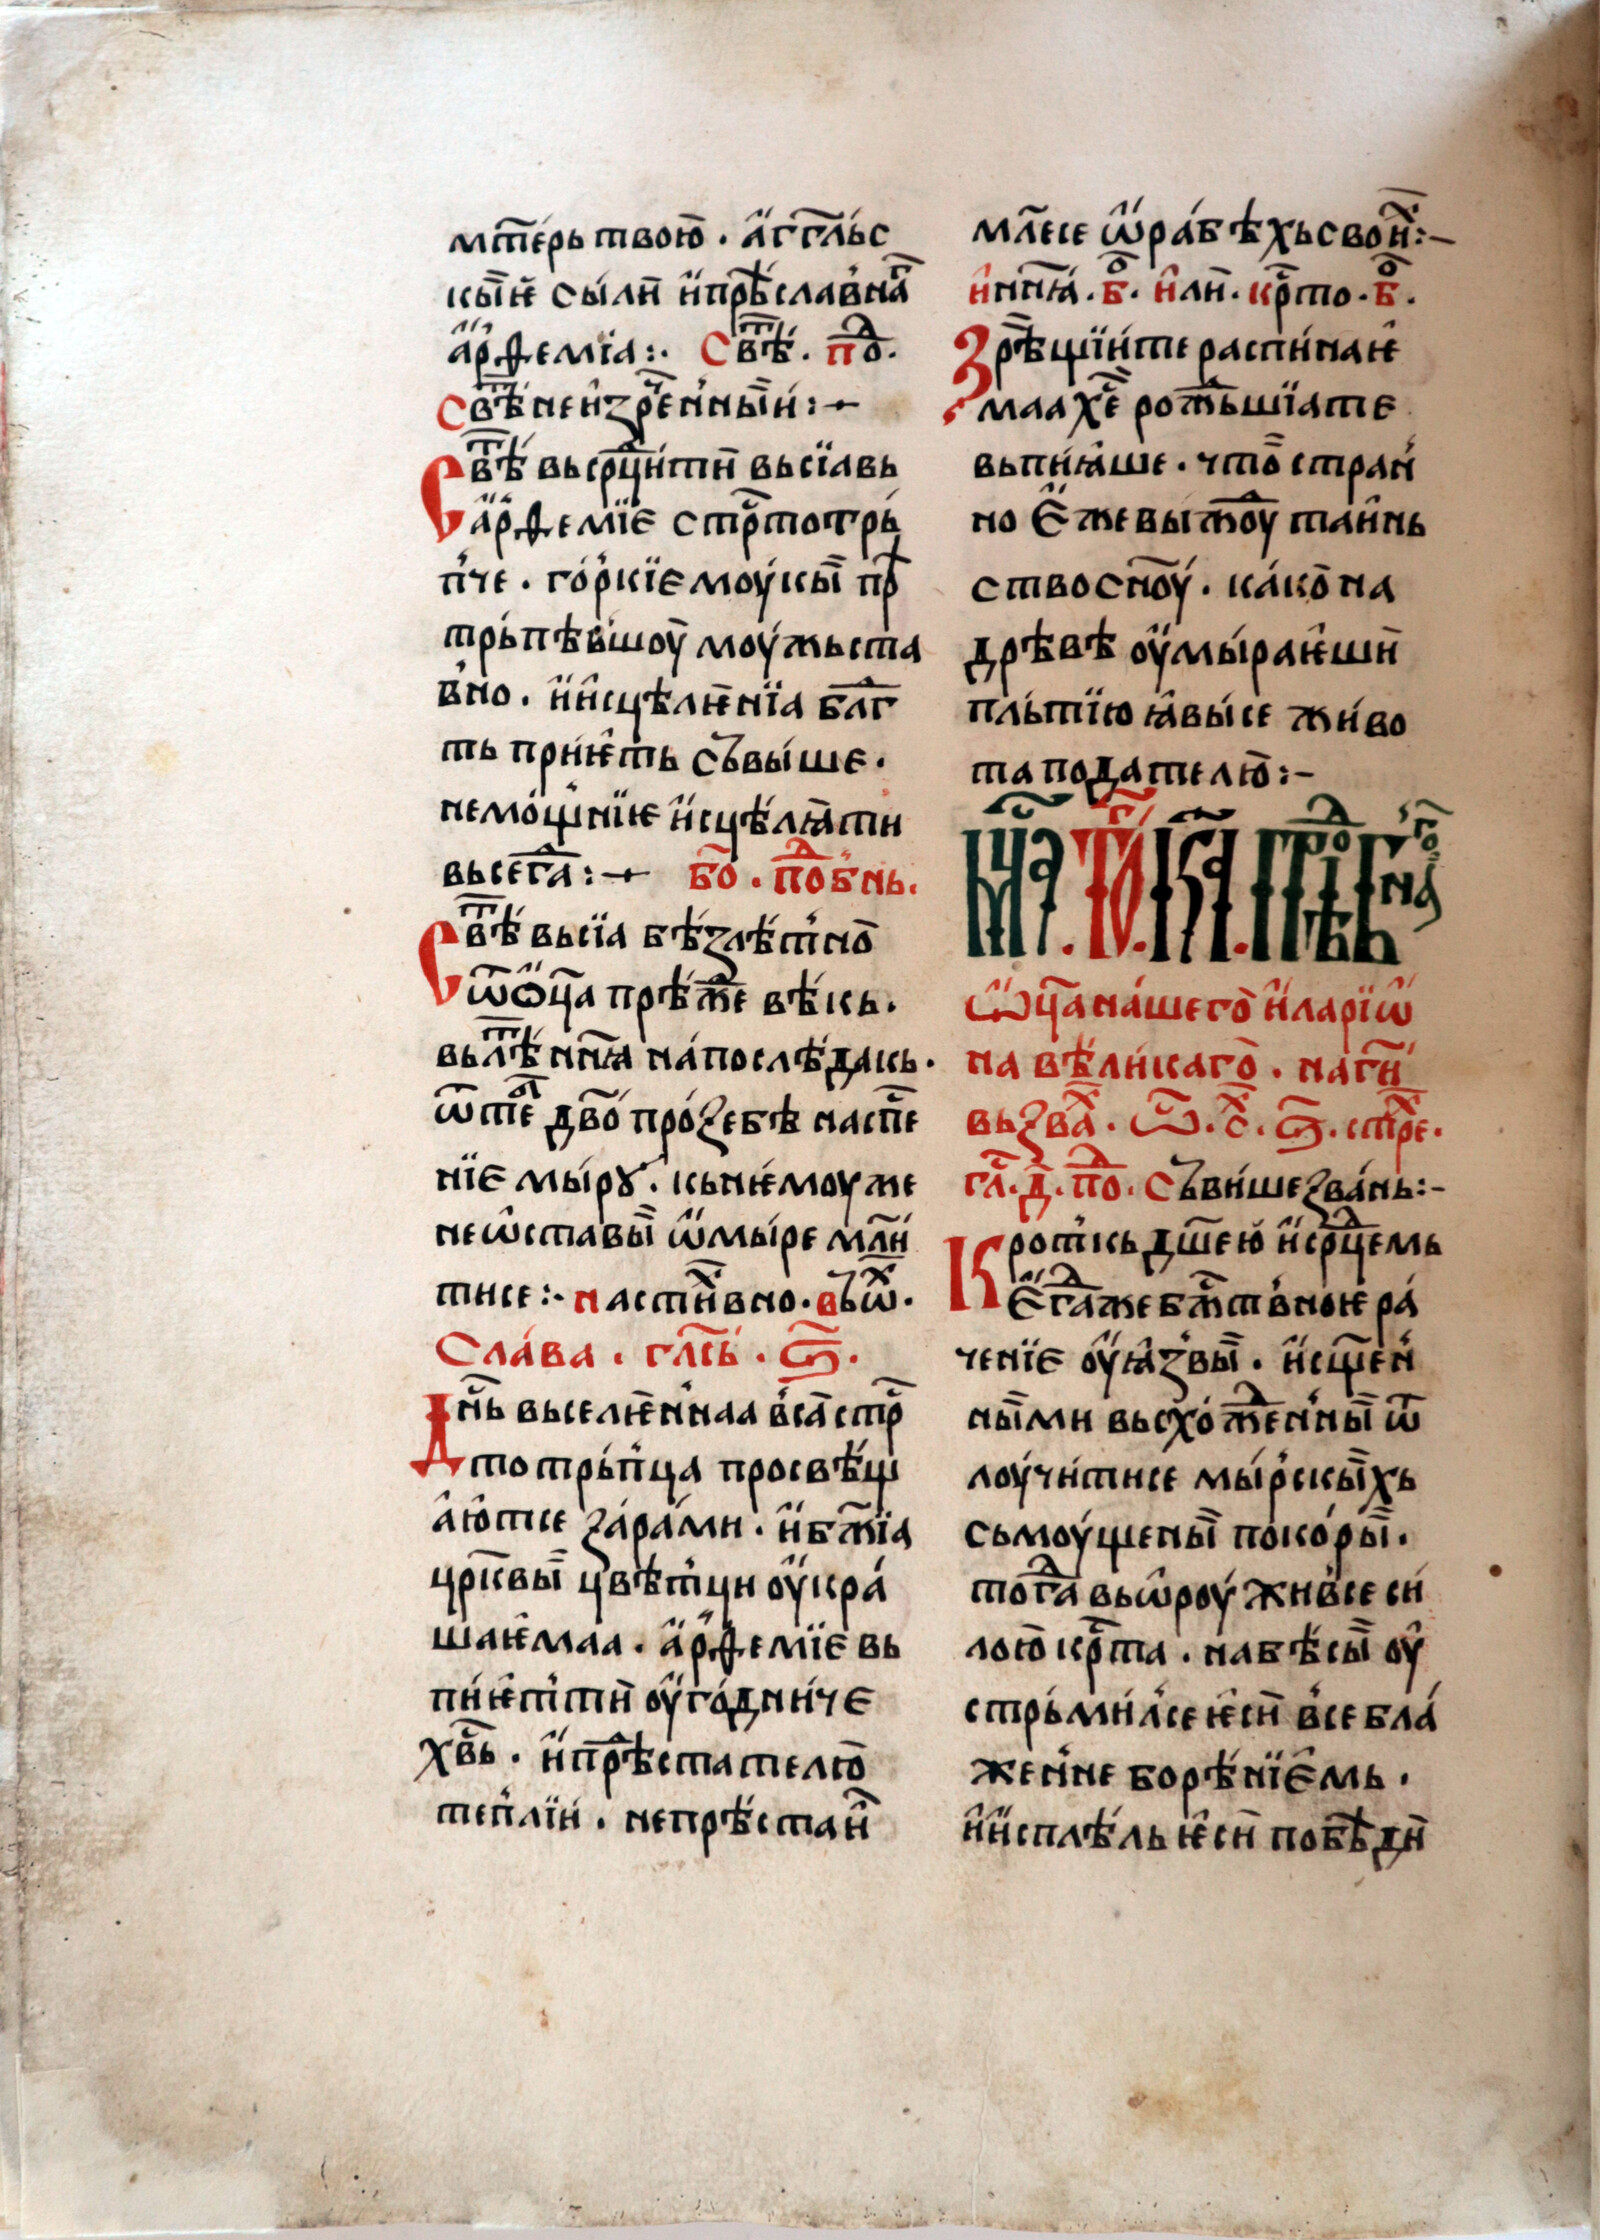 мт҃е́рь твою̀ . а҆́гг҃льс
кы̏ѥ си́лы̏ и҆прѣ̏славнаа̏
а҆́рѳемїа :· Свт҃ѣ́ . по̏ᷣ .
свт҃ѣ́ неи҆зрⷱе́нны̏и :⁓
Свт҃ѣ́ вьсрⷣци́ти̏ вьсїавь
а҆́рѳемїе стрⷭ҇тотрь́
п́че . го́ркїе моу́кы̏ прѣ̏
трьпѣ́вшоу̏ моу́жьста
в́но . и҆и҆сцѣлѥ́нїа блⷣг
ть при́ѥ҆ть съвы́ше .
немо́щнїѥ и҆сцѣ́лꙗ̏ти
вьсегⷣа :⁓ бо҃ . поⷣб́нь .
Свт҃ѣ́ вьсїа бѣ́злѣт́но̏
ѿо҆ц҃а прѣ́жⷣе вѣ́кь .
вьлѣⷮ́ нн҃ꙗ на́послѣ́дакь .
ѿтеⷠ҇ дв҃о про́зебѣ насп҃е
нїе мы́рꙋ . кьнѥ́моуже
неѡ҆ставы̏ ѡ҆мы́ре мл҃и́
тисе :· настиⷯвно . въѿⷯ .
Сла́ва . гла́сь́ . ѕ҃ .
Дн҃ь вьселѥ́н́наа в́са̏стрⷭ҇
тотрь́п́ца просвѣ́щ
а҆ю҆тсе за́рами . и҆бж҃їа
црⷦ҇вы̏ цвѣ́т́ци оу҆кра́
шаѥ҆маа . а҆́рѳемїе вь
пи́ѥт́ти̏ оу҆го́дни́че
хв҃ь . и҆прⷣѣстателю̏
теп́лїи́ . непрѣ́стаи҆̏
мл҃есе ѡ҆ра́бѣхьсвои̏ⷯ :⁓
и҆нн҃ꙗ . бⷪ҇ . и҆ли̏ . крⷭ҇то . бⷪ҇ .
Зрѣ̏щїи́те распи́наѥ҆
мааⷯ҇е рожⷣьшїате
вьпи́ꙗ҆ше . что̏стран́
но е҆́жевыжⷣоу таи҆нь
ствосн҃оу́ . ка́ко̏на
дрѣ́вѣ оу҆мы́раѥ҆ши̏
пльтїю ꙗ҆вы́се жи́во
таподателю̏ :⁓
мцⷭ҇а . тогⷤ . кⷶ҇а . прⷣпоб́наго
ѿц҃ана́шего̏ и҆ларїѡ҆
на вѣ́ли́каго̏ . нагⷭ҇и́
вьзваⷯ . ѿ . сⷯ . ѕ҃ . стрⷯе .
глⷭ҇ . д҃ . поⷣ . Съви́шезва́нь :⁓
Крот́кь дш҃ею̏ и҆срⷣцемь
е҆гⷣажебжⷭ҇тв́ноѥ ра́
ченїе оу҆ꙗ҆звы̏ . и҆сщ҃ен́
ны̏ми вьсхо́жⷣен́ны̏ ѿ
лоу́чи́тисе мы́рскы̏хь
сьмоу́щены̏ поко́ры̏ .
тогⷣа вьѡ҆роу́жив́се си́
лою̏ крⷭ҇та . набѣ́сы̏ оу҆
стрьми́л́се ѥ҆си̏ в́себла́
жен́не борѣ́нїе҆мь .
и҆и҆сплѣ́ль ѥ҆си̏ побѣⷣ́ди̏